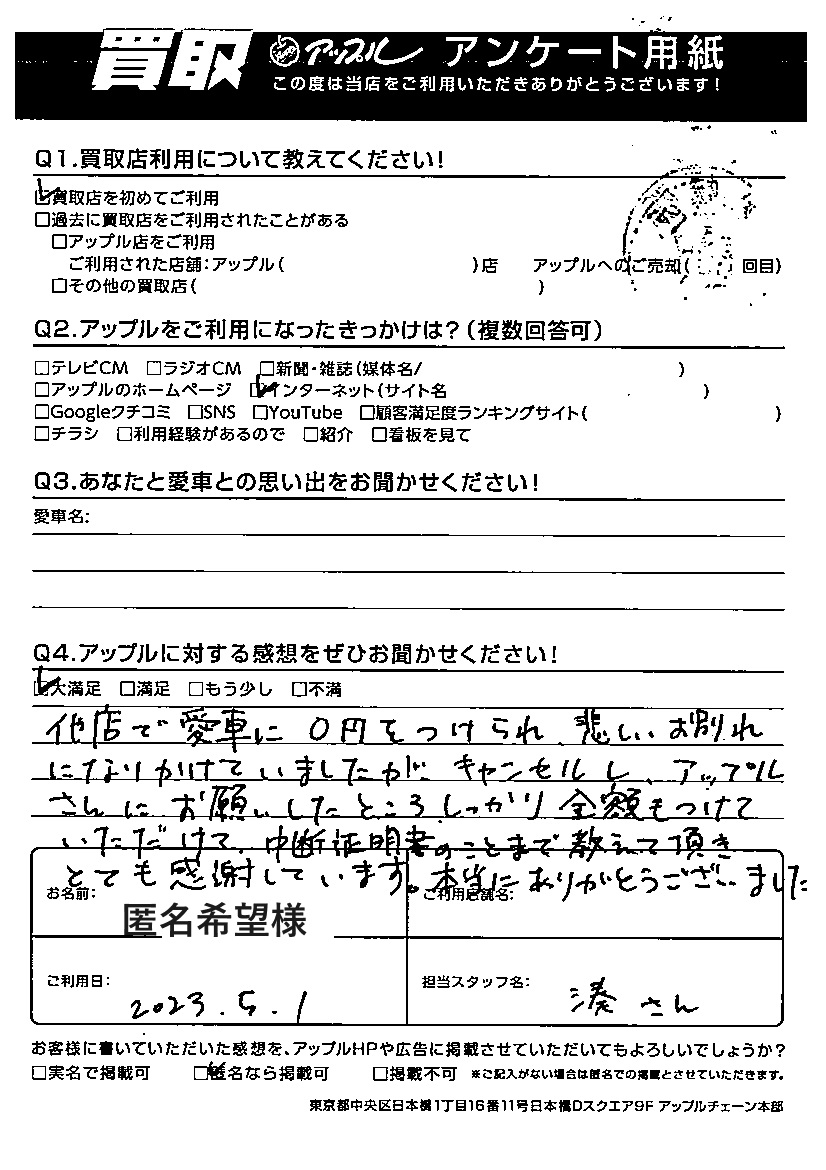 買取 アップル アンケート用紙
この度は当店をご利用いただきありがとうございます!
Q1.買取店利用について教えてください!
☑買取店を初めてご利用
□過去に買取店をご利用されたことがある
□アップル店をご利用
ご利用された店舗:アップル( )店 アップルへのご売却( 回目)
□その他の買取店( )
Q2.アップルをご利用になったきっかけは?(複数回答可)
□テレビCM □ラジオCM □新聞・雑誌(媒体名/ )
□アップルのホームページ ☑インターネット(サイト名 )
□Googleクチコミ □SNS □YouTube □顧客満足度ランキングサイト( )
□チラシ □利用経験があるので □紹介 □看板を見て
Q3.あなたと愛車との思い出をお聞かせください!
愛車名:
Q4.アップルに対する感想をぜひお聞かせください!
☑大満足 □満足 □もう少し □不満
他店で愛車に0円をつけられ、悲しいお別れ
になりかけていましたが、キャンセルし、アップル
さんにお願いしたところ、しっかり金額もつけて
いただけて、中断証明書のことまで教えて頂き
とても感謝しています。本当にありがとうございました
お名前: ご利用店舗名:
匿名希望様
ご利用日: 担当スタッフ名:
2023.5.1 湊さん
お客様に書いていただいた感想を、アップルHPや広告に掲載させていただいてもよろしいでしょうか?
□実名で掲載可 ☑匿名なら掲載可 □掲載不可 ※ご記入がない場合は匿名での掲載とさせていただきます。
東京都中央区日本橋1丁目16番11号日本橋Dスクエア9F アップルチェーン本部